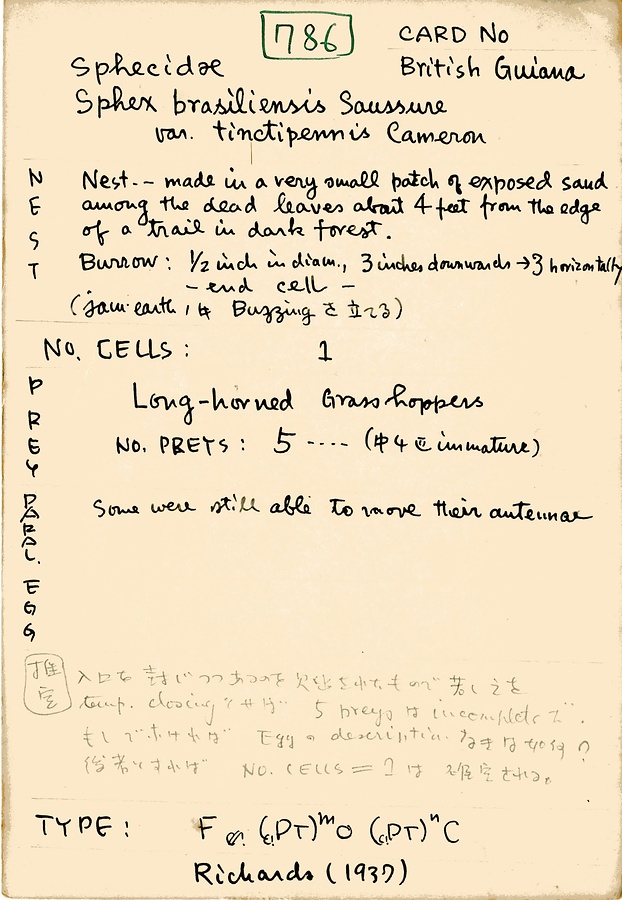 786
CARD No
Sphecidae
British Guiana
Sphex brasiliensis Saussure
var. tinctipennis Cameron
NEST
Nest.-- made in a very small patch of exposed sand
among the dead leaves about 4 feet from the edge
of a trail in dark forest.
Burrow: 1/2 inch in diam., 3 inches downwards → 3 horizontally
- end cell -
Buzzing を立てる)
NO. CELLS: 1
PREY
Long-horned Grasshoppers
NO. PREYS: 5 ---- (中4 immature)
PARAL. EGG
Some were still able to move their antennae
推定
入口を封じつつあるのを
temp. closing 5 preys は incomplete で.
もし Egg の description なきは如何?
後者とすれば NO. CELLS = 1 は 確定される。
TYPE: F (PT)ᵐO (PT)ⁿC
Richards (1937)